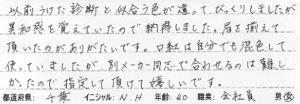 以前うけた診断と似合う色が違って、びっくりしましたが
異和感を覚えていたので納得しました。眉を揃えて
頂いたのがありがたいです。口紅は自分でも混色して
使っていましたが、別メーカー同志で合わせるのは難し
かったので指定して頂けて嬉しいです。
都道府県: 千葉 イニシャル: N.H 年齢: 40 職業: 会社員 男・女